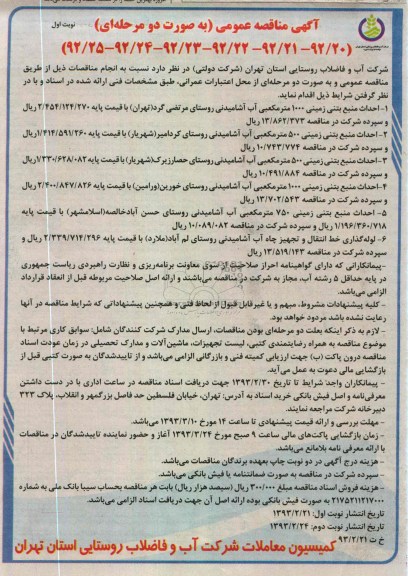 آگهی مناقصه عمومی (به صورت دو مرحله‌ای)
نوبت اول
(۹۲/۲۰ -۹۲/۲۱ -۹۲/۲۲ -۹۲/۲۳-۹۲/۲۴-۹۲/۲۵)
شرکت آب و فاضلاب روستایی استان تهران (شرکت دولتی) در نظر دارد نسبت به انجام مناقصات ذیل از طریق
مناقصه عمومی و به صورت دو مرحله‌ای از محل اعتبارات عمرانی، طبق مشخصات فنی ارائه شده در اسناد و با در
نظر گرفتن شرایط ذیل اقدام نماید.
۱-احداث منبع بتنی زمینی ۱۰۰۰ مترمکعبی آب آشامیدنی روستای مرتضی گرد(تهران) با قیمت پایه ۲/۴۵۴/۱۲۴/۲۷۰ ریال
و سپرده شرکت در مناقصه ۱۳/۸۶۲/۳۷۳ ریال
۲-احداث منبع بتنی زمینی ۵۰۰ مترمکعبی آب آشامیدنی روستای کردامیر(شهریار) با قیمت پایه ۱/۴۱۴/۵۹۱/۲۶۰ ریال
و سپرده شرکت در مناقصه ۱۰/۷۴۳/۷۷۴ ریال
۳-احداث منبع بتنی زمینی ۵۰۰ مترمکعبی آب آشامیدنی روستای حصارزیرک(شهریار) با قیمت پایه ۱/۳۳۰/۶۲۸/۰۸۲ ریال
و سپرده شرکت در مناقصه ۱۰/۴۹۱/۸۸۴ ریال
۴-احداث منبع بتنی زمینی ۱۰۰۰ مترمکعبی آب آشامیدنی روستای خورین(ورامین) با قیمت پایه ۲/۴۰۰/۸۴۷/۸۲۶ ریال
و سپرده شرکت در مناقصه ۱۳/۷۰۲/۵۴۳ ریال
۵- احداث منبع بتنی زمینی ۷۵۰ مترمکعبی آب آشامیدنی روستای حسن آبادخالصه(اسلامشهر) با قیمت پایه
۱/۱۹۶/۳۶۰/۷۱۸ ریال و سپرده شرکت در مناقصه ۱۰/۰۸۹/۰۸۲ ریال
۶- لوله‌گذاری خط انتقال و تجهیز چاه آب آشامیدنی روستای لم آباد(ملارد) با قیمت پایه ۲/۳۳۹/۷۱۴/۲۹۶ ریال و
سپرده شرکت در مناقصه ۱۳/۵۱۹/۱۴۳ ریال
-پیمانکارانی که دارای گواهینامه احراز صلاحیت از سوی معاونت برنامه‌ریزی و نظارت راهبردی ریاست جمهوری
در پایه حداقل ۵ رشته آب، مجاز به شرکت در مناقصه می‌باشند و ارائه اصل صلاحیت مربوطه قبل از انعقاد قرارداد
الزامی می‌باشد.
- کلیه پیشنهادات مشروط، مبهم و یا غیرقابل قبول از لحاظ فنی و همچنین پیشنهاداتی که شرایط مناقصه در آنها
رعایت نشده باشد مردود خواهد بود.
- لازم به ذکر اینکه بعلت دو مرحله‌ای بودن مناقصات، ارسال مدارک شرکت کنندگان شامل: سوابق کاری مرتبط با
موضوع مناقصه به همراه رضایتمندی کتبی، لیست تجهیزات، ماشین‌آلات و مدارک تحصیلی در زمان عودت اسناد
مناقصه درون پاکت (ب) جهت ارزیابی کمیته فنی و بازرگانی الزامی می‌باشد و از تاییدشدگان به صورت کتبی قبل از
بازگشایی مالی دعوت به عمل می‌آید.
- پیمانکاران واجد شرایط تا تاریخ ۱۳۹۳/۲/۳۰ جهت دریافت اسناد مناقصه در ساعت اداری با در دست داشتن
معرفی‌نامه و اصل فیش بانکی خرید اسناد به آدرس: تهران، خیابان فلسطین حد فاصل بزرگمهر و انقلاب، پلاک ۳۲۳
دبیرخانه شرکت مراجعه نمایند.
- مهلت بررسی و ارائه قیمت پیشنهادی تا ساعت ۱۴ مورخ ۱۳۹۳/۳/۱۰ می‌باشد.
- زمان بازگشایی پاکت‌های مالی ساعت ۹ صبح مورخ ۱۳۹۳/۳/۲۴ آغاز و حضور نماینده تاییدشدگان در مناقصات
با ارائه معرفی نامه بلامانع می‌باشد.
- هزینه درج آگهی در دو نوبت چاپ بعهده برندگان مناقصات می‌باشد.
- سپرده شرکت در مناقصه به صورت ضمانتنامه یا فیش بانکی می‌باشد.
- هزینه فروش اسناد مناقصه مبلغ ۳۰۰/۰۰۰ ریال (سیصد هزار ریال) بابت هر مناقصه بحساب سیبا بانک ملی به شماره
۲۱۷۵۲۱۱۲۱۷۰۰۰ به صورت فیش بانکی بوده ارائه اصل آن جهت دریافت اسناد الزامی می‌باشد.
تاریخ انتشار نوبت اول: ۱۳۹۳/۲/۲۱
تاریخ انتشار نوبت دوم: ۱۳۹۳/۲/۲۴
خ ت ۹۳/۲/۲۱
کمیسیون معاملات شرکت آب و فاضلاب روستایی استان تهران